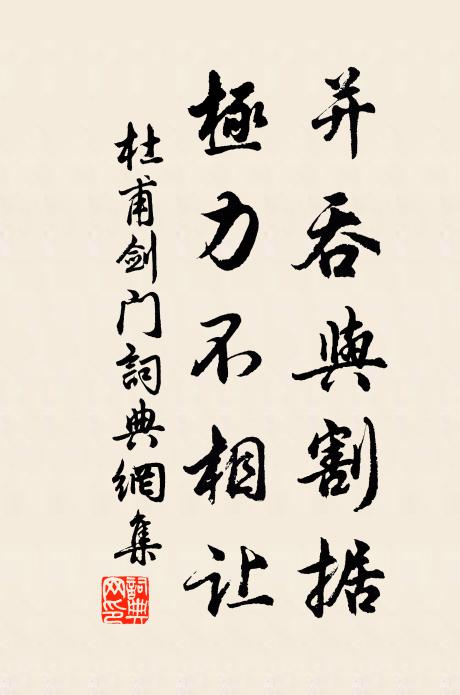 并吞與割据
極力不相让
杜甫剑门詞典網集
詞典网印